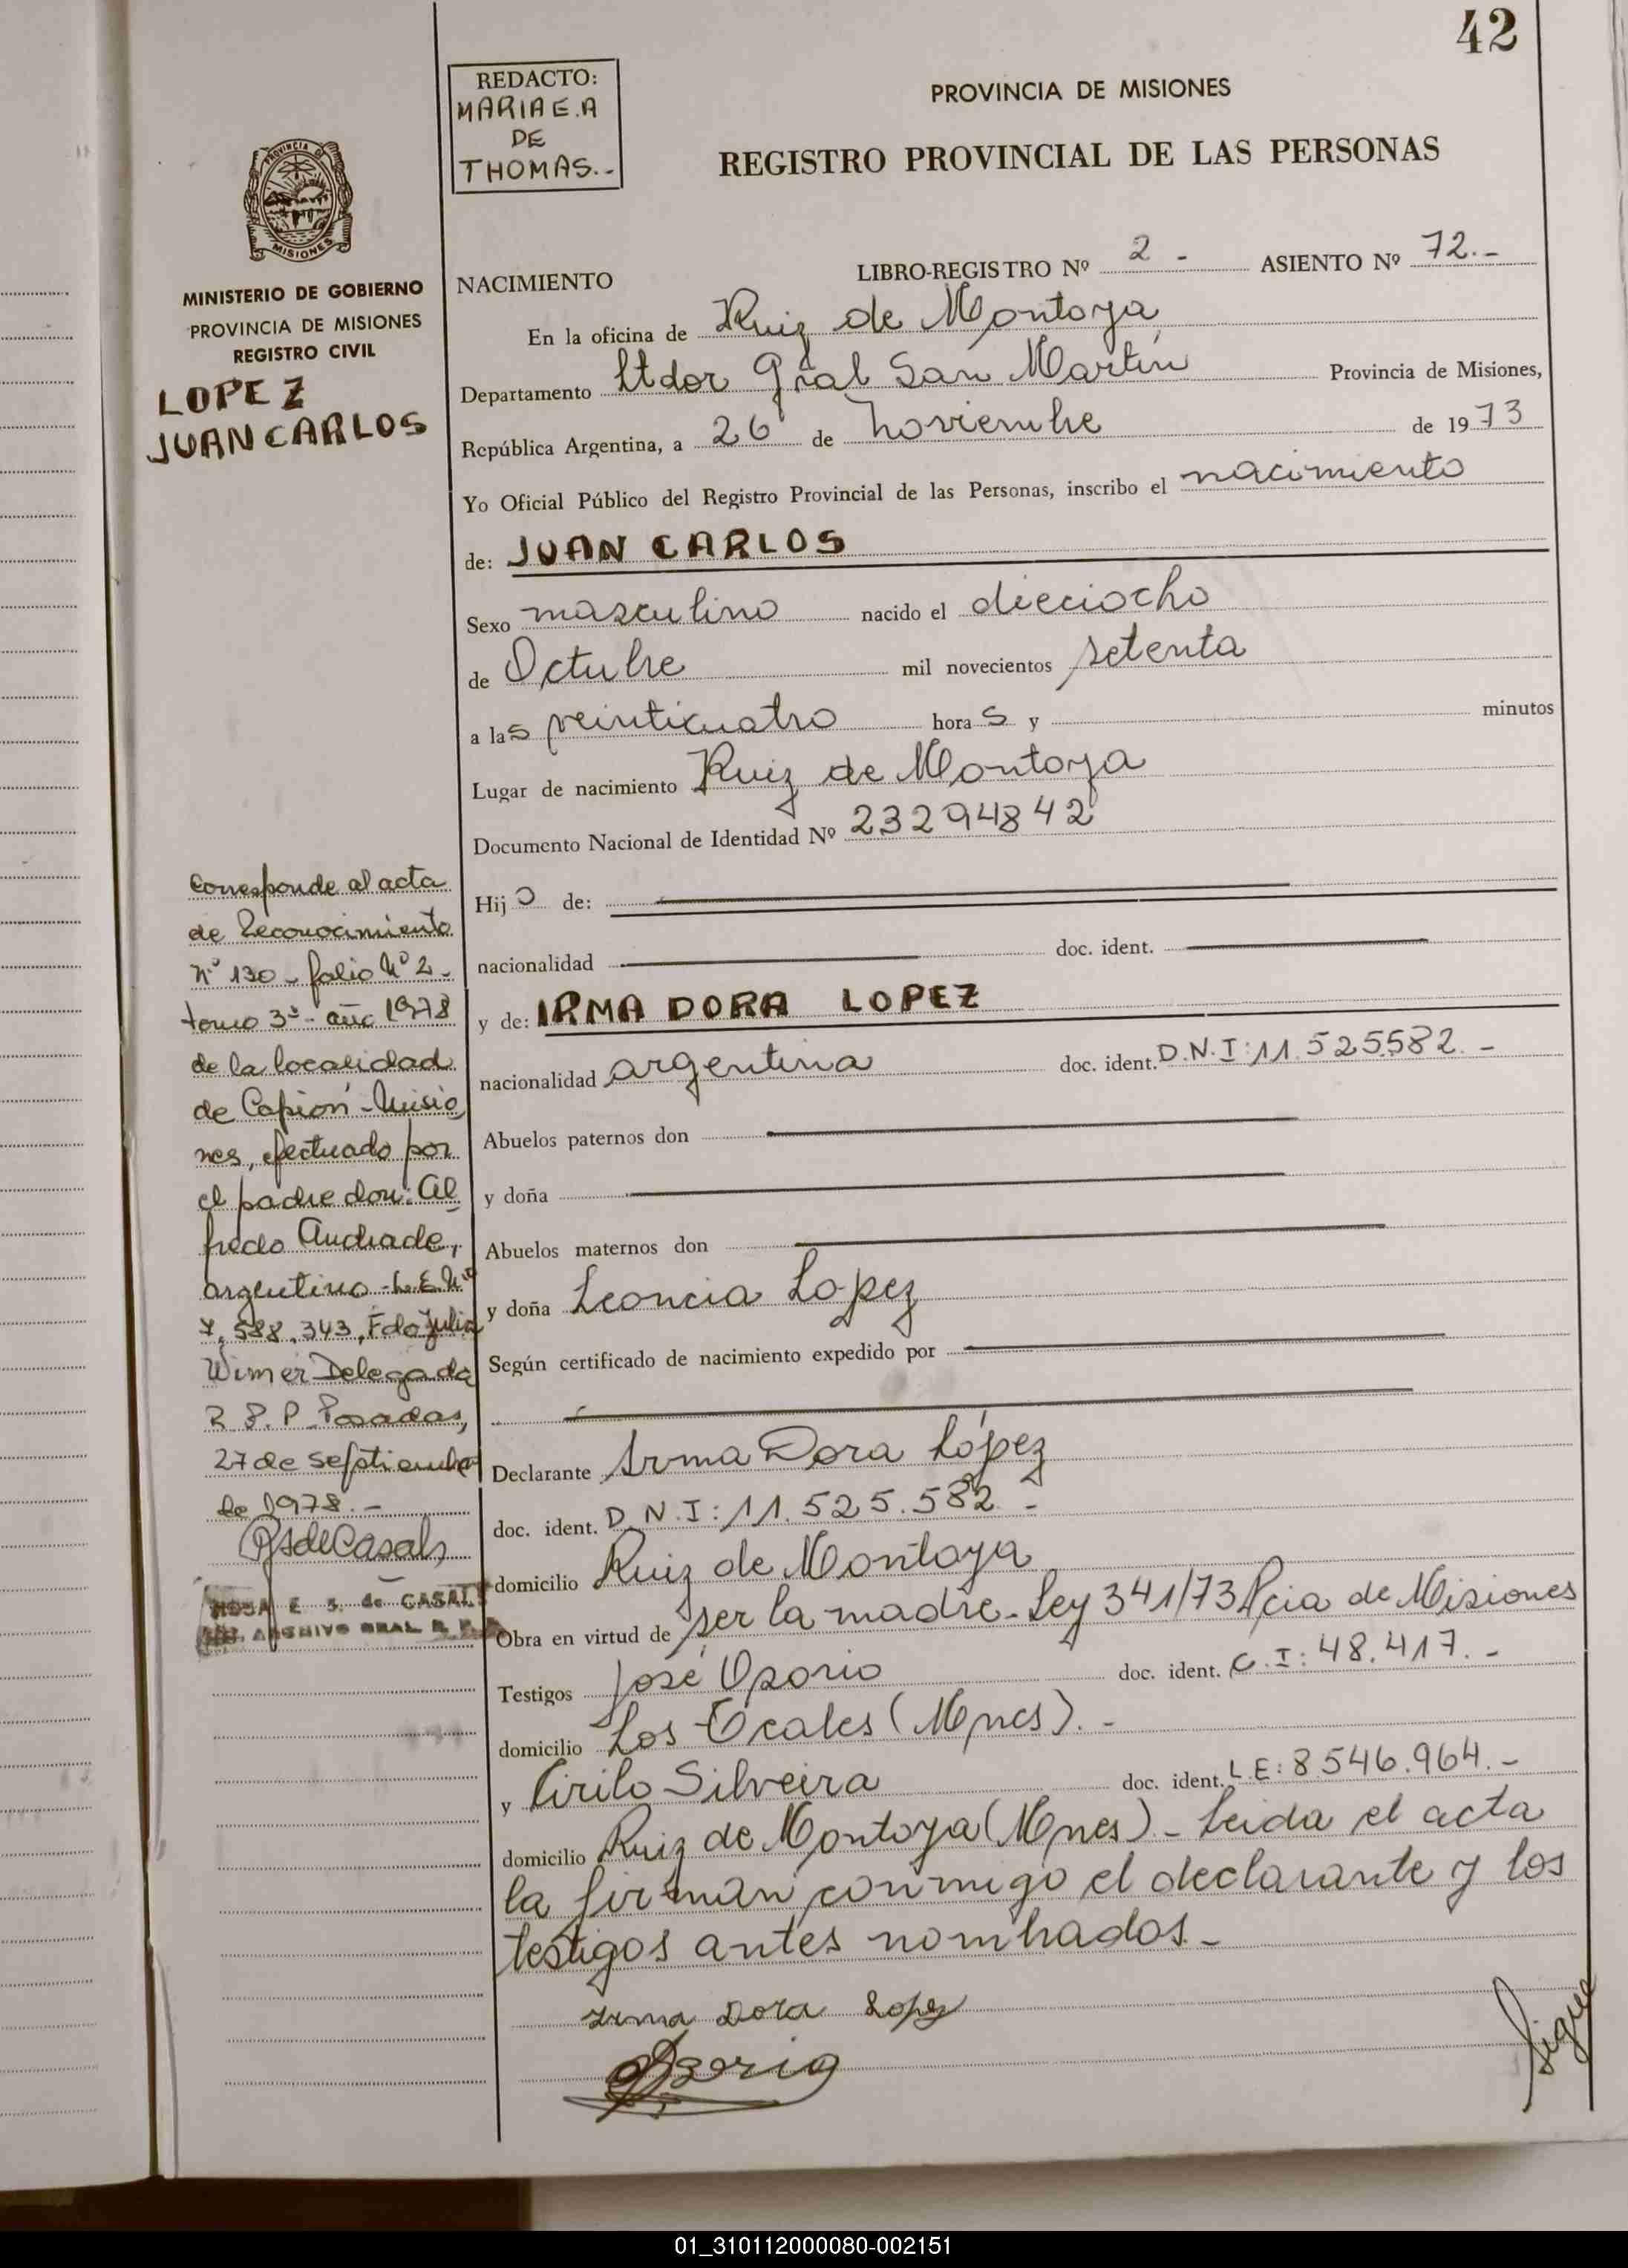 42
REDACTO:
MARIA E.A
DE
THOMAS.-
PROVINCIA DE MISIONES
REGISTRO PROVINCIAL DE LAS PERSONAS
PROVINCIA DE
MISIONES
MINISTERIO DE GOBIERNO
PROVINCIA DE MISIONES
REGISTRO CIVIL
LOPEZ
JUAN CARLOS
NACIMIENTO LIBRO-REGISTRO Nº 2 - ASIENTO Nº 72.-
En la oficina de Ruiz de Montoya
Departamento Ltdor Gral San Martín Provincia de Misiones,
República Argentina, a 26 de noviembre de 1973
Yo Oficial Público del Registro Provincial de las Personas, inscribo el nacimiento
de: JUAN CARLOS
Sexo masculino nacido el dieciocho
de Octubre mil novecientos setenta
a las veinticuatro horas y minutos
Lugar de nacimiento Ruiz de Montoya
Documento Nacional de Identidad Nº 23294842
Hijo de:
nacionalidad doc. ident.
y de: IRMA DORA LOPEZ
nacionalidad argentina doc. ident. D.N.I: 11.525.582.-
Abuelos paternos don
y doña
Abuelos maternos don
y doña Leoncia Lopez
Según certificado de nacimiento expedido por
Declarante Irma Dora López
doc. ident. D.N.I: 11.525.582.-
domicilio Ruiz de Montoya
Obra en virtud de ser la madre.-Ley 341/73 Pcia de Misiones
Testigos José Osorio doc. ident. C.I: 48.417.-
domicilio Los Teales (Mnes).-
y Cirilo Silveira doc. ident. L.E: 8.546.964.-
domicilio Ruiz de Montoya (Mnes).- Leida el acta
la firman conmigo el declarante y los
testigos antes nombrados.-
Irma Dora Lopez
Osorio
Sigue
Corresponde al acta
de Reconocimiento
Nº 130 - folio Nº 2 -
tomo 3º - año 1978
de la localidad
de Capiovi - Misio
nes, efectuado por
el padre don: Al
fredo Andrade,
argentino - L.E. Nº
7.588.343, Fdo Julia
Wimer Delegada
R.P.P Posadas,
27 de septiembre
de 1978.-
RSdeCasals
ROSA E. S. de CASALS
ARCHIVO GRAL R. P. P.
01_310112000080-002151